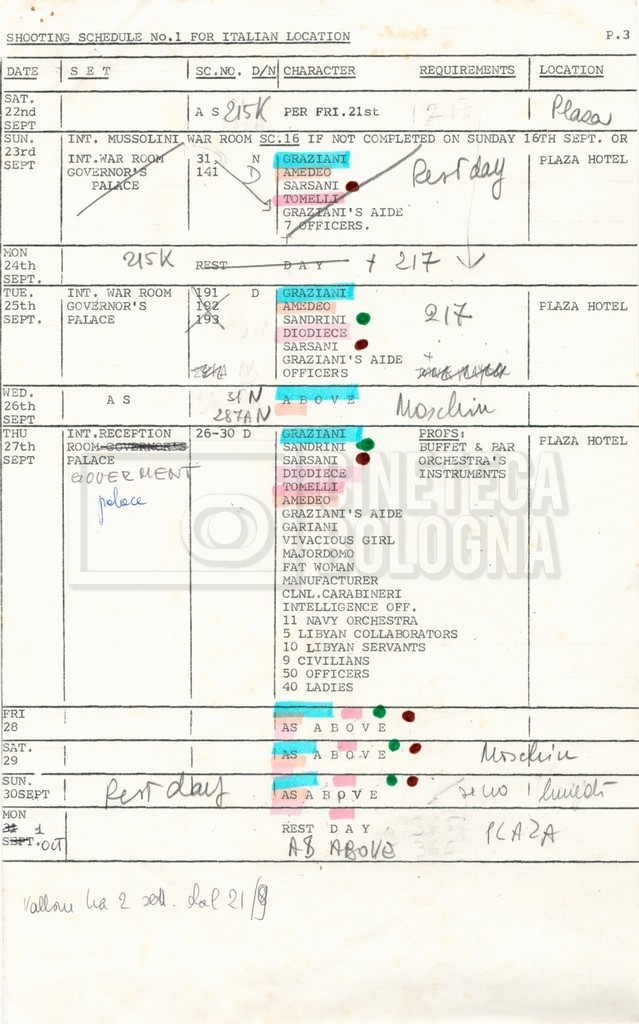 SHOOTING SCHEDULE No.1 FOR ITALIAN LOCATION P.3
DATE S E T SC.NO. D/N CHARACTER REQUIREMENTS LOCATION
SAT.
22nd A S 215K PER FRI.21st 217 Plaza
SEPT
SUN. INT. MUSSOLINI WAR ROOM SC.16 IF NOT COMPLETED ON SUNDAY 16TH SEPT. OR
23rd INT.WAR ROOM 31 N GRAZIANI PLAZA HOTEL
SEPT GOVERNOR'S 141 D AMEDEO Rest day
PALACE SARSANI
TOMELLI
GRAZIANI'S AIDE
7 OFFICERS.
MON 215K
24th REST DAY + 217
SEPT.
TUE. INT. WAR ROOM 191 D GRAZIANI
25th GOVERNOR'S 192 AMEDEO 217 PLAZA HOTEL
SEPT. PALACE 193 SANDRINI
DIODIECE
SARSANI
GRAZIANI'S AIDE
OFFICERS
WED. 31 N
26th A S A B O V E Moschin
SEPT 287A N
THU INT.RECEPTION 26-30 D GRAZIANI PROPS: PLAZA HOTEL
27th ROOM GOVERNOR'S SANDRINI BUFFET & BAR
SEPT PALACE SARSANI ORCHESTRA'S
GOVERMENT DIODIECE INSTRUMENTS
palace TOMELLI
AMEDEO
GRAZIANI'S AIDE
GARIANI
VIVACIOUS GIRL
MAJORDOMO
FAT WOMAN
MANUFACTURER
CLNL.CARABINERI
INTELLIGENCE OFF.
11 NAVY ORCHESTRA
5 LIBYAN COLLABORATORS
10 LIBYAN SERVANTS
9 CIVILIANS
50 OFFICERS
40 LADIES
FRI
28 AS A B O V E
SAT.
29 AS A B O V E Moschin
SUN. Rest day
30SEPT AS A B O V E se no lunedì
MON
31 1 REST D A Y PLAZA
SEPT. OCT AS ABOVE
Vallone ha 2 sett. dal 21/9
CINETECA
BOLOGNA